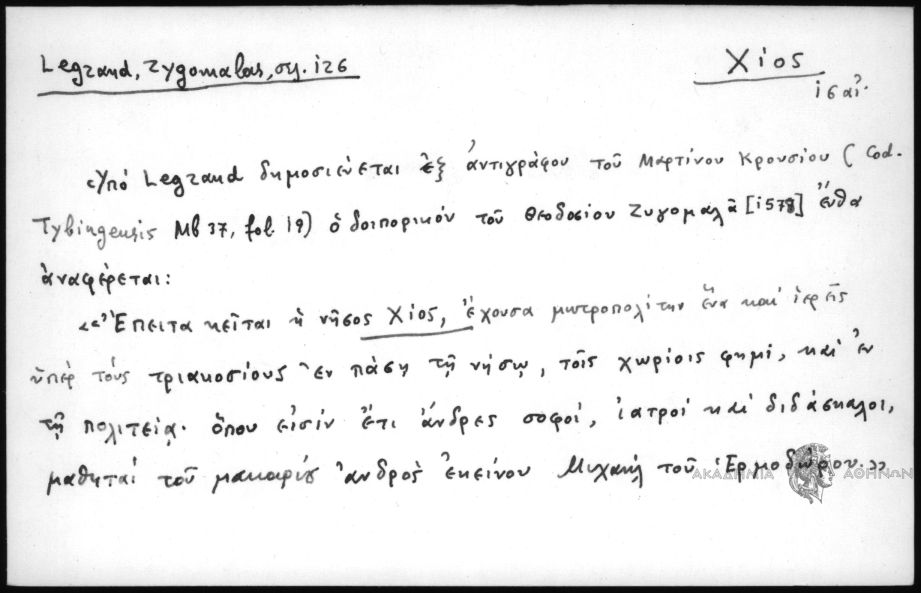 Legrand, Zygomalas, ση. 126
Χίος
16 αἰ.
Ὑπό Legrand δημοσιεύεται ἐξ ἀντιγράφου τοῦ Μαρτίνου Κρουσίου (Cod.
Tybingensis Mb 37, fol. 19) ὁδοιπορικόν τοῦ Θεοδοσίου Ζυγομαλᾶ [1578] ἔνθα
ἀναφέρεται:
«Ἔπειτα κεῖται ἡ νῆσος Χίος, ἔχουσα μητροπολίτην ἕνα καί ἱερεῖς
ὑπέρ τούς τριακοσίους ἐν πάσῃ τῇ νήσῳ, τοῖς χωρίοις φημί, καί ἐν
τῇ πολιτείᾳ· ὅπου εἰσίν ἔτι ἄνδρες σοφοί, ἰατροί καί διδάσκαλοι,
μαθηταί τοῦ μακαρίου ἀνδρός ἐκείνου Μιχαήλ τοῦ Ἑρμοδώρου.»
ΑΚΑΔΗΜΙΑ ΑΘΗΝΩΝ